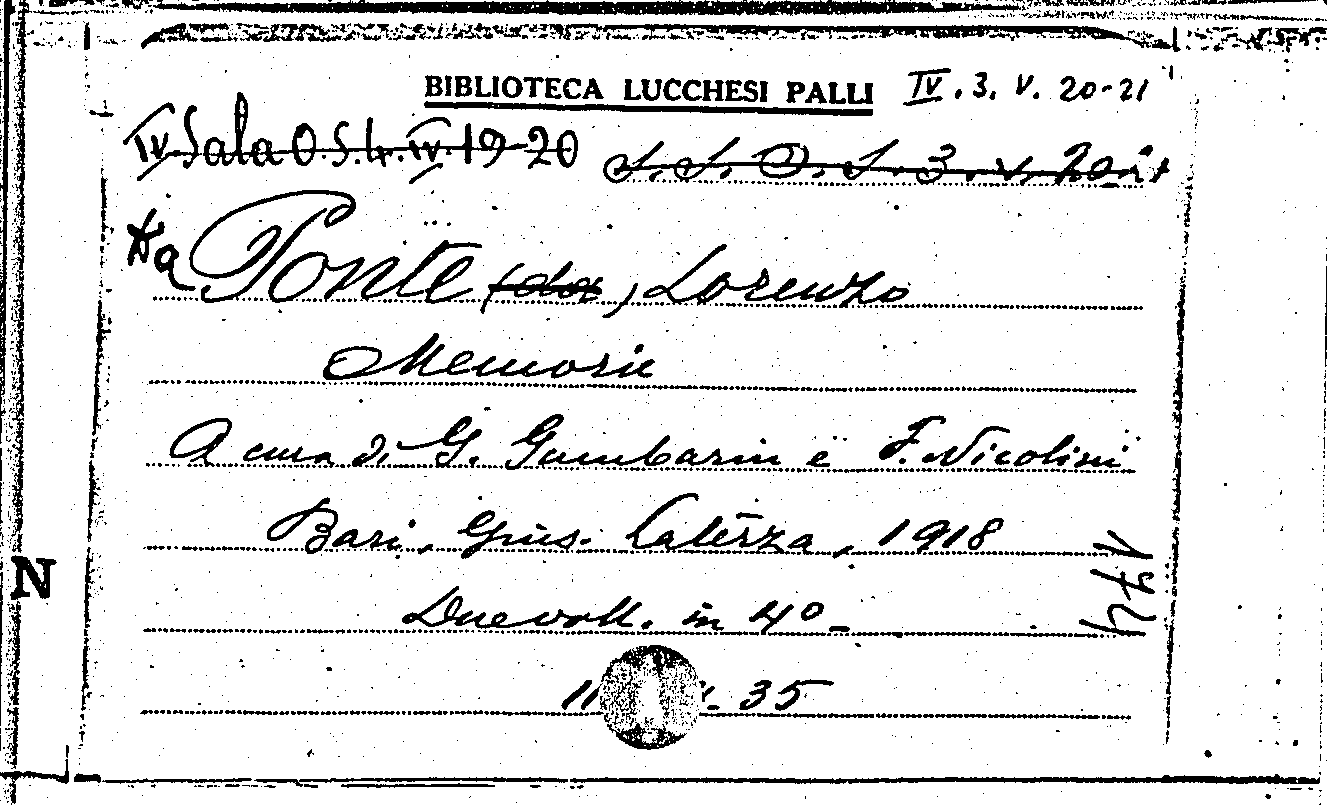 BIBLIOTECA LUCCHESI PALLI IV. 3. V. 20-21
IV Sala O.S.4.IV.19-20 S. S. O. S. 3. V. 20-21
Da Ponte (da), Lorenzo
Memorie
A cura di G. Gambarin e F. Nicolini
Bari, Gius. Laterza, 1918
Due voll. in 4º
35
N